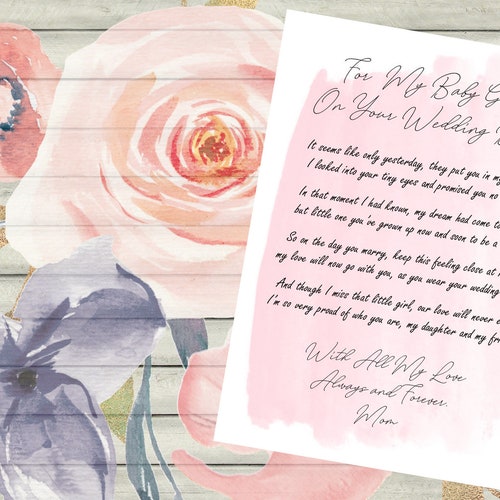 For My Baby G
On Your Wedding
It seems like only yesterday, they put you in my
I looked into your tiny eyes and promised you no
In that moment I had known, my dream had come t
but little one you've grown up now and soon to be a
So on the day you marry, keep this feeling close at
my love will now go with you, as you wear your wedding
And though I miss that little girl, our love will never e
I'm so very proud of who you are, my daughter and my fr
With All My Love
Always and Forever.
Mom